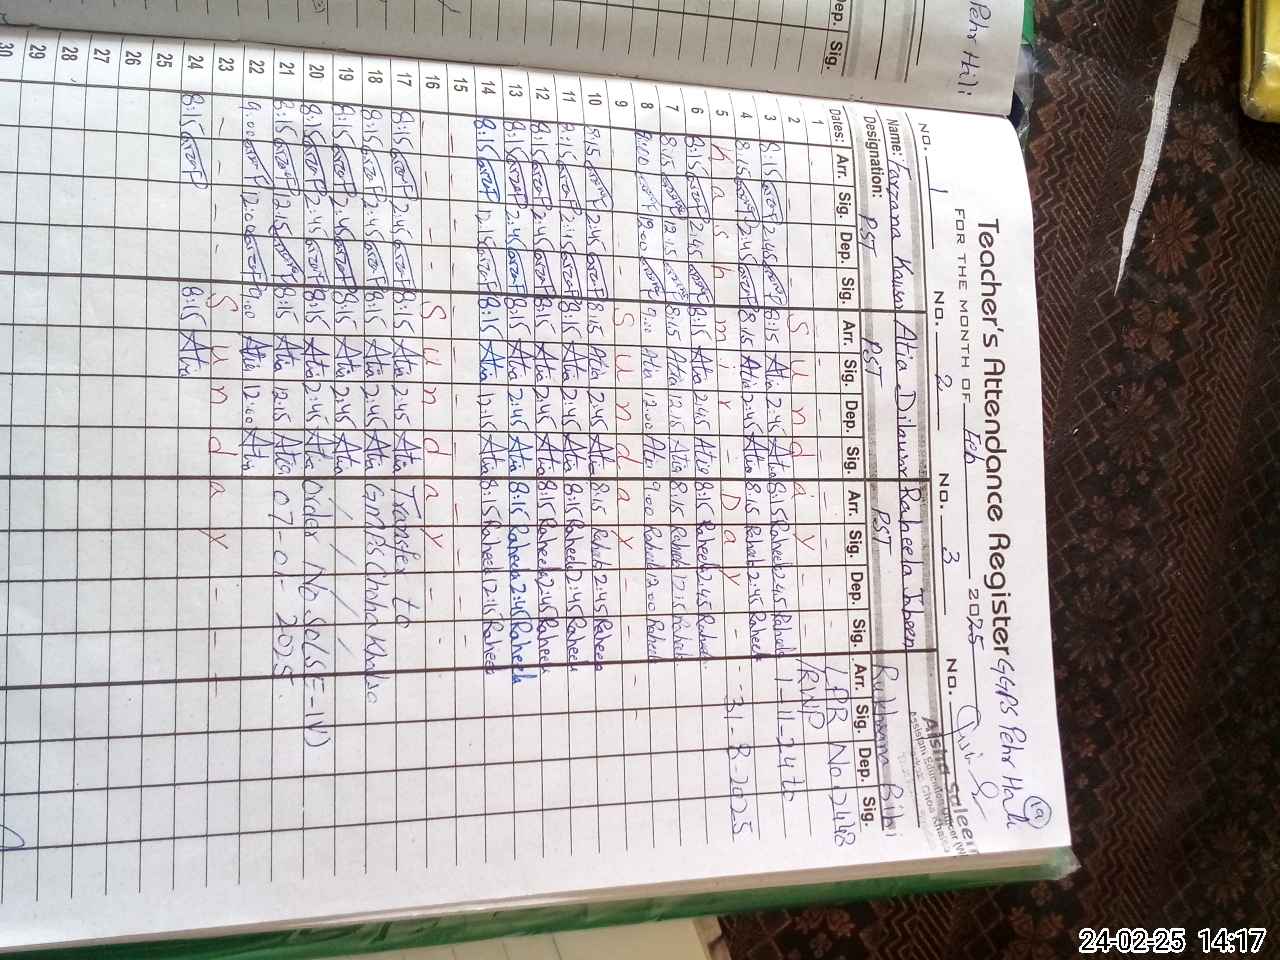 Teacher's Attendance Register GGPS Pehr Hali
FOR THE MONTH OF Feb 2025
NO. 1 NO. 2 NO. 3 NO.
Aisha Saleem
Name: Farzana Kausar Atia Dilawar Raheela Jabeen Rukhsana Bibi
Designation: PST PST PST
Dates: Arr. Sig. Dep. Sig. Arr. Sig. Dep. Sig. Arr. Sig. Dep. Sig. Arr. Sig. Dep. Sig.
1 LPR No 2448
2 - - - - S u n d a y - - /RWP
3 8:15 2:45 8:15 Atia 2:45 Atia 8:15 Raheela 2:45 Raheela 1-11-24 to
4 8:15 2:45 8:15 Atia 2:45 Atia 8:15 Raheela 2:45 Raheela
5 K a s h m i r - D a y - - 31-8-2025
6 8:15 2:45 8:15 Atia 2:45 Atia 8:15 Raheela 2:45 Raheela
7 8:15 12:15 8:15 Atia 12:15 Atia 8:15 Raheela 12:15 Raheela
8 9:00 12:00 9:00 Atia 12:00 Atia 9:00 Raheela 12:00 Raheela
9 - - - - S u n d a y - - -
10 8:15 2:45 8:15 Atia 2:45 Atia 8:15 Raheela 2:45 Raheela
11 8:15 2:45 8:15 Atia 2:45 Atia 8:15 Raheela 2:45 Raheela
12 8:15 2:45 8:15 Atia 2:45 Atia 8:15 Raheela 2:45 Raheela
13 8:15 2:45 8:15 Atia 2:45 Atia 8:15 Raheela 2:45 Raheela
14 8:15 12:15 8:15 Atia 12:15 Atia 8:15 Raheela 12:15 Raheela
15
16 - - - - S u n d a y - - -
17 8:15 2:45 8:15 Atia 2:45 Atia Transfer to
18 8:15 2:45 8:15 Atia 2:45 Atia GMPS
19 8:15 2:45 8:15 Atia 2:45 Atia
20 8:15 2:45 8:15 Atia 2:45 Atia Order No
21 8:15 12:15 8:15 Atia 12:15 Atia 07-01-2025
22 9:00 12:00 9:00 Atia 12:00 Atia
23 - - - - S u n d a y - - -
24 8:15 8:15 Atia
25
26
27
28
29
30
Pehr Hali
Dep. Sig.
24-02-25 14:17